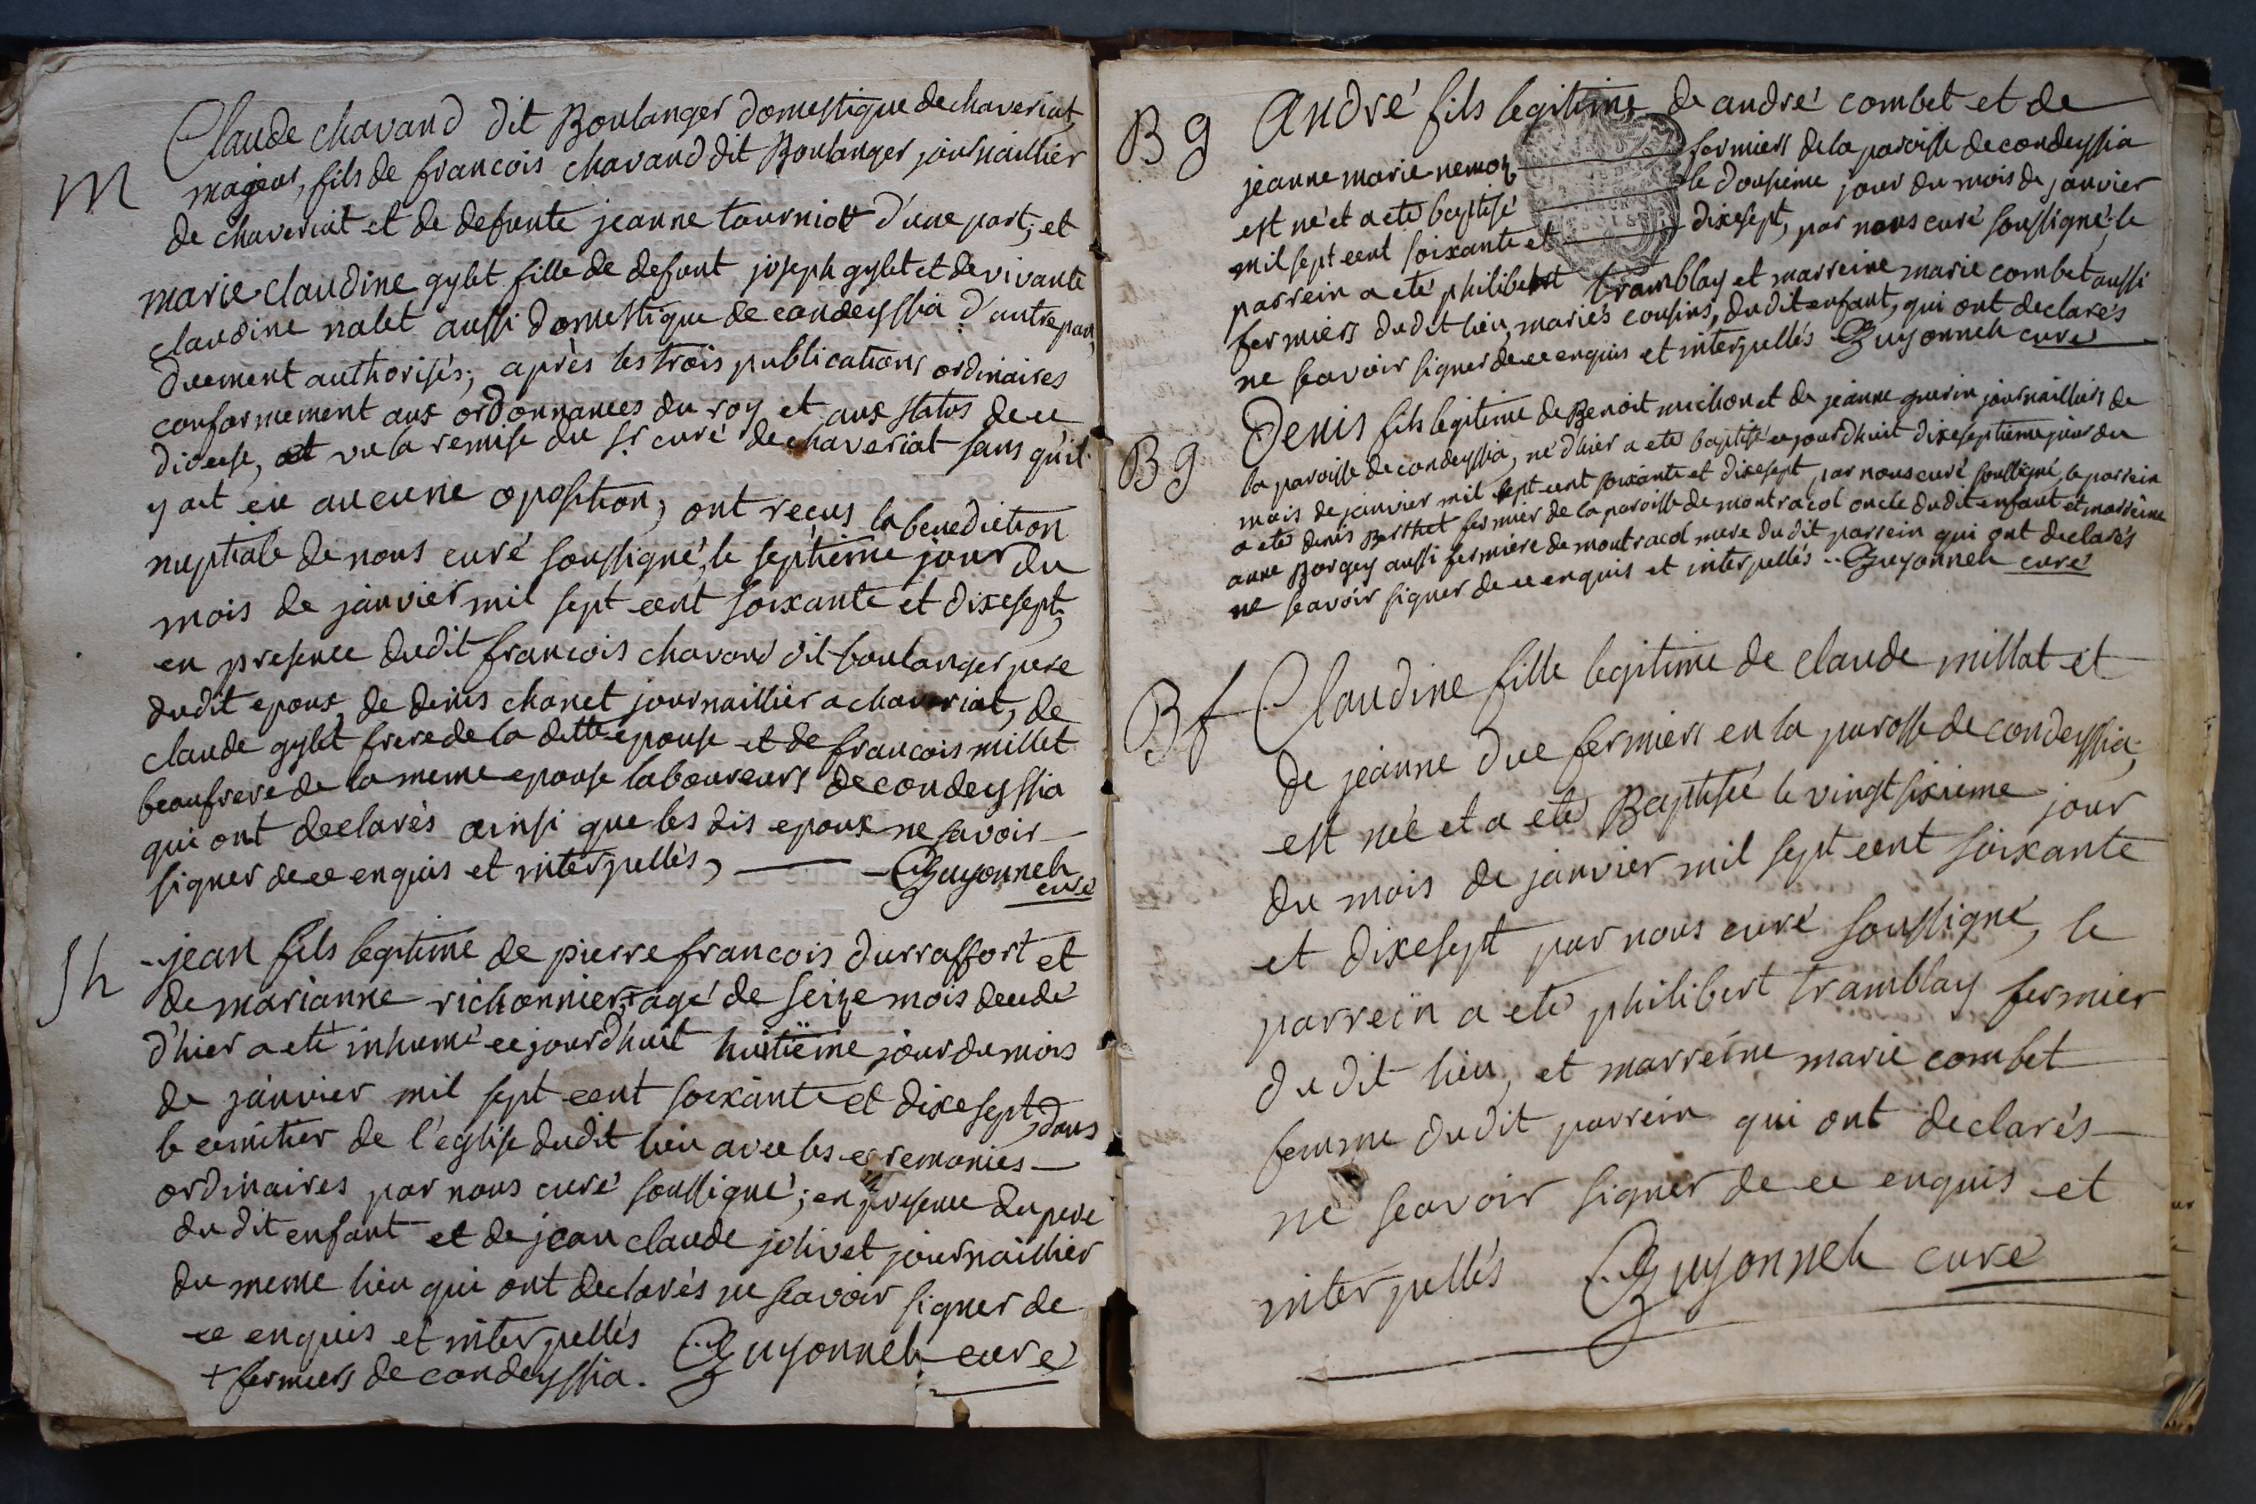 Claude chavand dit Boulanger domestique de chaveriat,
M
majeur, fils de francois chavand dit Boulanger journaillier
de chaveriat et de defunte jeanne tourniott d'une part; et
marie claudine gylet fille de defunt joseph gylet et de vivante
claudine nalet aussi domestique de condeyssia d'autre part,
duement authorisés; après les trois publications ordinaires
conformement aux ordonnances du roy et aux status de ce
diocese, et vu la remise du sr curé de chaveriat sans qu'il
y ait eu aucune oposition, ont reçus la benediction
nuptiale de nous curé soussigné, le septième jour du
mois de janvier mil sept cent soixante et dixesept,
en presence dudit francois chavand dit boulanger pere
dudit epoux, de denis chanet journaillier a chaveriat, de
claude gylet frere de la ditte epouse et de francois millet
beaufrere de la meme epouse laboureurs de condeyssia
qui ont declarés ainsi que les dis epoux ne savoir
signer de ce enquis et interpellés, Guyonneh
curé
Sh
jean fils legitime de pierre francois durraffort et
de marianne richonnier + agé de seize mois decedé
d'hier a eté inhumé cejourd'huit huitïeme jour du mois
de janvier mil sept cent soixante et dixesept, dans
le cemitier de l'eglise dudit lieu avec les ceremonies
ordinaires par nous curé soussigné; en presence du pere
du dit enfant et de jean claude jolivet journaillier
du meme lieu qui ont declarés ne scavoir signer de
ce enquis et interpellés Guyonneh curé
+ fermiers de condeyssia.
B g
André fils legitime de andré combet et de
jeanne marie nemoz fermiers de la paroisse de condeyssia
est né et a eté baptisé le dousieme jour du mois de janvier
mil sept cent soixante et dixesept, par nous curé soussigné, le
parrein a eté philibert tramblay et marreine marie combet aussi
fermiers dudit lieu, mariés cousins, dudit enfant, qui ont declarés
ne scavoir signer de ce enquis et interpellés Guyonneh curé
B g
Denis fils legitime de Benoit michon et de jeanne guerin journailliers de
la paroisse de condeyssia, né d'hier a eté baptisé cejourd'huit dixeseptieme jour du
mois de janvier mil sept cent soixante et dixesept, par nous curé soussigné, le parrein
a eté denis Berthet fermier de la paroisse de montracol oncle dudit enfant et marreine
anne Borgey aussi fermiere de montracol mere dudit parrein qui ont declarés
ne scavoir signer de ce enquis et interpellés .. Guyonneh curé
B f
Claudine fille legitime de claude millat et
de jeanne due fermiers en la parosse de condeyssia,
est née et a eté Baptisée le vingt sixieme jour
du mois de janvier mil sept cent soixante
et dixesept par nous curé soussigné, le
parreïn a eté philibert tramblay fermier
du dit lieu, et marreine marie combet
femme dudit parrein qui ont declarés
ne scavoir signer de ce enquis et
interpellés Guyonneh curé